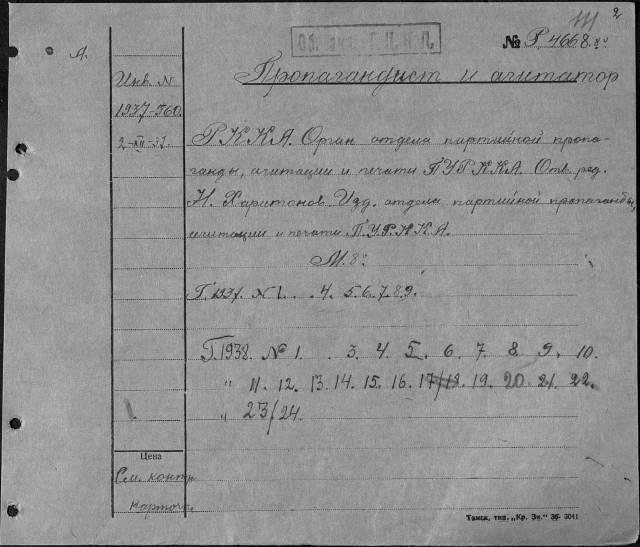 2
Об. экз. Г.Ц.Н.Л.
№ Р. 4668.
А.
Пропагандист и агитатор
Инв. N
1937-560.
2-XII-37.
Р.К.К.А. Орган отдела партийной пропа-
ганды, агитации и печати ПУРККА. Отв. ред.
Н. Харитонов Изд. отдела партийной пропаганды,
агитации и печати П.У.Р.К.К.А.
М. 8°
Г. 1937. N 1. . 4. 5. 6. 7. 8. 9.
Г. 1938. № 1. . 3. 4. 5. 6. 7. 8. 9. 10.
" 11. 12. 13. 14. 15. 16. 17/18. 19. 20. 21. 22.
" 23/24.
Цена
См. контр.
карточк
Томск, тип. „Кр. Зн." Зб. 3041